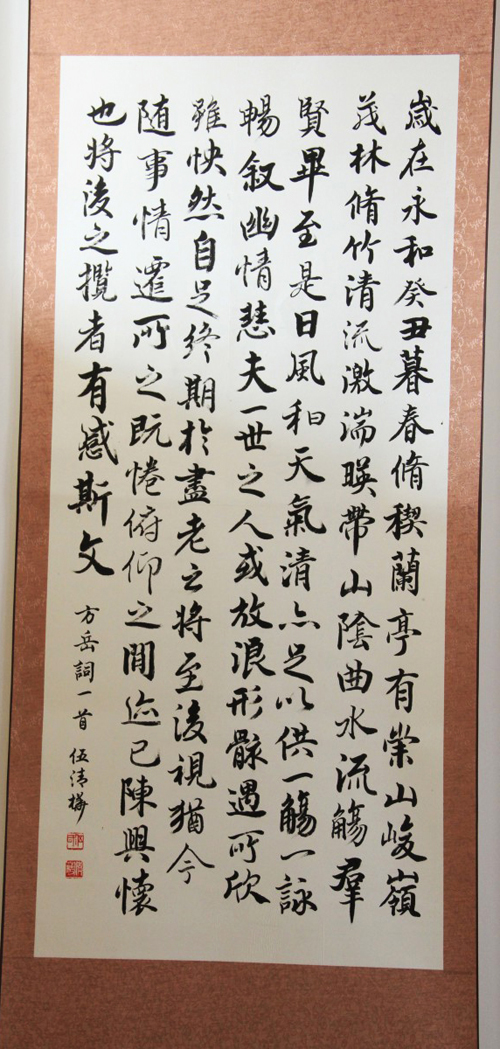 歲在永和癸丑暮春脩稧蘭亭有崇山峻嶺
茂林脩竹清流激湍暎帶山陰曲水流觴羣
賢畢至是日風和天氣清亦足以供一觴一詠
暢叙幽情悲夫一世之人或放浪形骸遇所欣
雖怏然自足終期於盡老之將至後視猶今
随事情遷所之既惓俯仰之間迹已陳興懷
也將後之攬者有感斯文
方岳詞一首 伍清梅